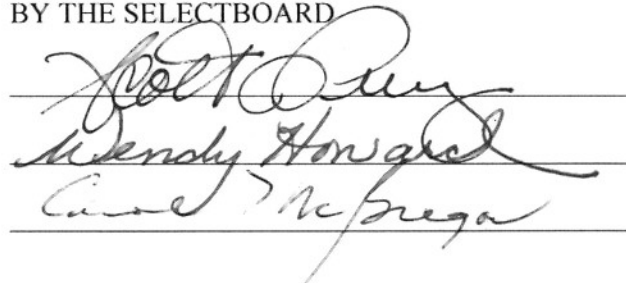 BY THE SELECTBOARD
Scott
Wendy Howard
Carol McGregor